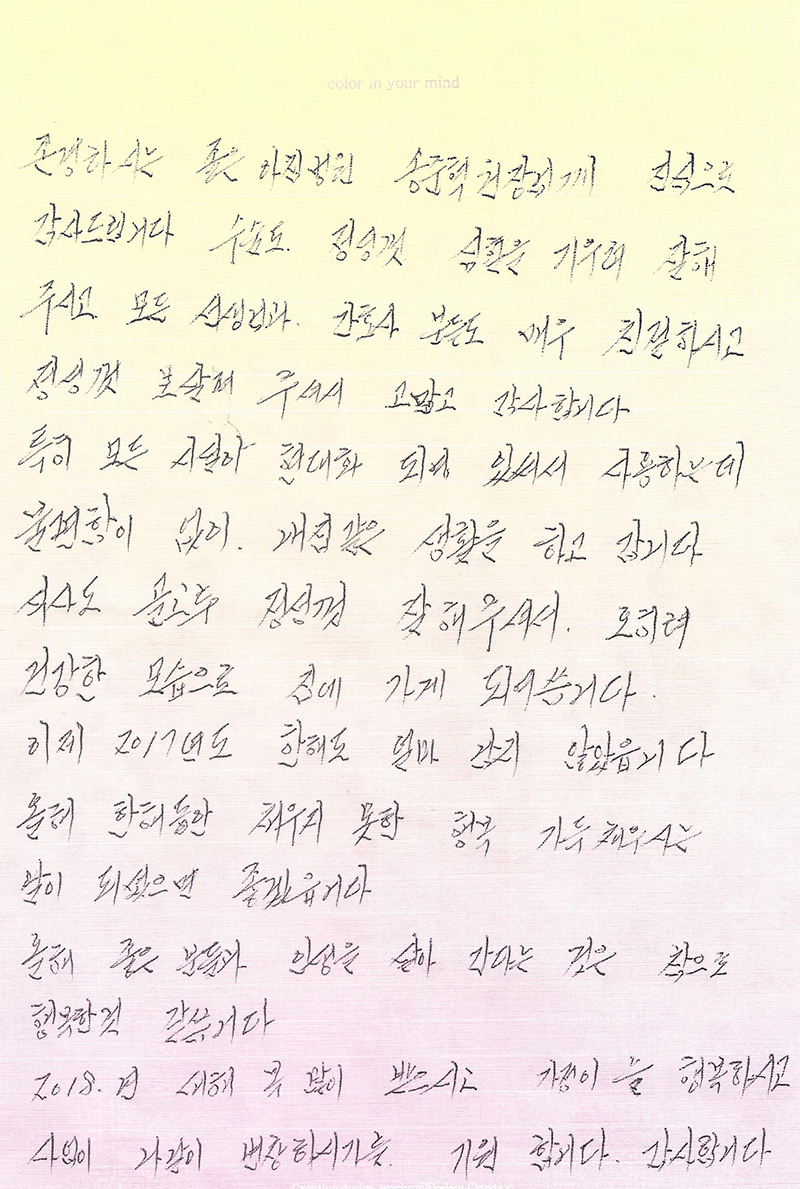 color in your mind
존경하시는 좋은 아침병원 송준혁 원장님게 진심으로
감사드립니다 수술도. 정성껏 심혈을 기우려 잘해
주시고 모든 선생님과. 간호사 분들도 매우 친절하시고
정성껏 보살펴 주셔서 고맙고 감사합니다
특히 모든 시설이 현대화 되여 있써서 사용하는데
불편함이 없이. 내집같은 생활을 하고 갑니다
식사도 골고루 정성껏 잘해주셔서. 오히려
건강한 모습으로 집에 가게 되여씁니다.
이제 2017년도 한해도 얼마 남지 않았읍니다
올해 한해동안 채우지 못한 행복 가득 채우시는
날이 되셨으면 좋겠읍니다
올해 좋은 분들과 인생을 살아 간다는 것은 참으로
행복한것 같씁니다
2018. 년 새해 복 많이 받으시고 가정이 늘 행복하시고
사업이 나날이 번창하시기를. 기원 합니다. 감사합니다